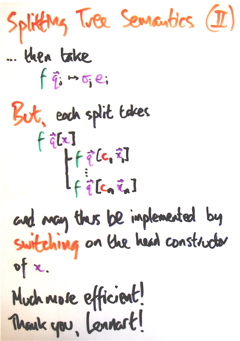 Splitting Tree Semantics (II)
... then take
f q⃗ᵢ ↦ σᵢeᵢ
But, each split takes
f q⃗[x]
f q⃗[c₁ x⃗₁]
⋮
f q⃗[cₙ x⃗ₙ]
and may thus be implemented by
switching on the head constructor
of x.
Much more efficient!
Thank you, Lennart!